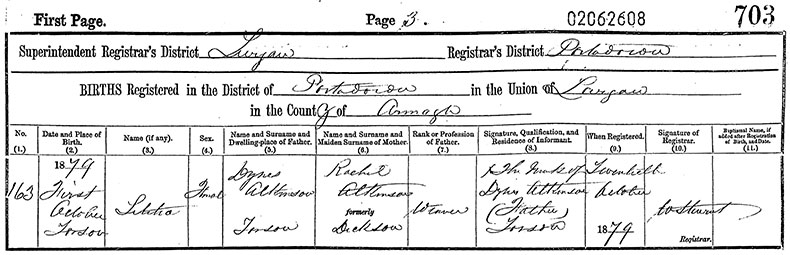 First Page. Page 3. 02062608 703
Superintendent Registrar's District Lurgan Registrar's District Portadown
BIRTHS Registered in the District of Portadown in the Union of Lurgan
in the County of Armagh
No. Date and Place of Birth. Name (if any). Sex. Name and Surname and Dwelling-place of Father. Name and Surname and Maiden Surname of Mother. Rank or Profession of Father. Signature, Qualification, and Residence of Informant. When Registered. Signature of Registrar. Baptismal Name, if added after Registration of Birth, and Date.
(1.) (2.) (3.) (4.) (5.) (6.) (7.) (8.) (9.) (10.) (11.)
1879 Dynes Rachel X The Mark of Twentieth
163 First Atkinson Atkinson Dynes Atkinson October
October Letitia formerly Weaver (Father)
Dickson 1879 Registrar.